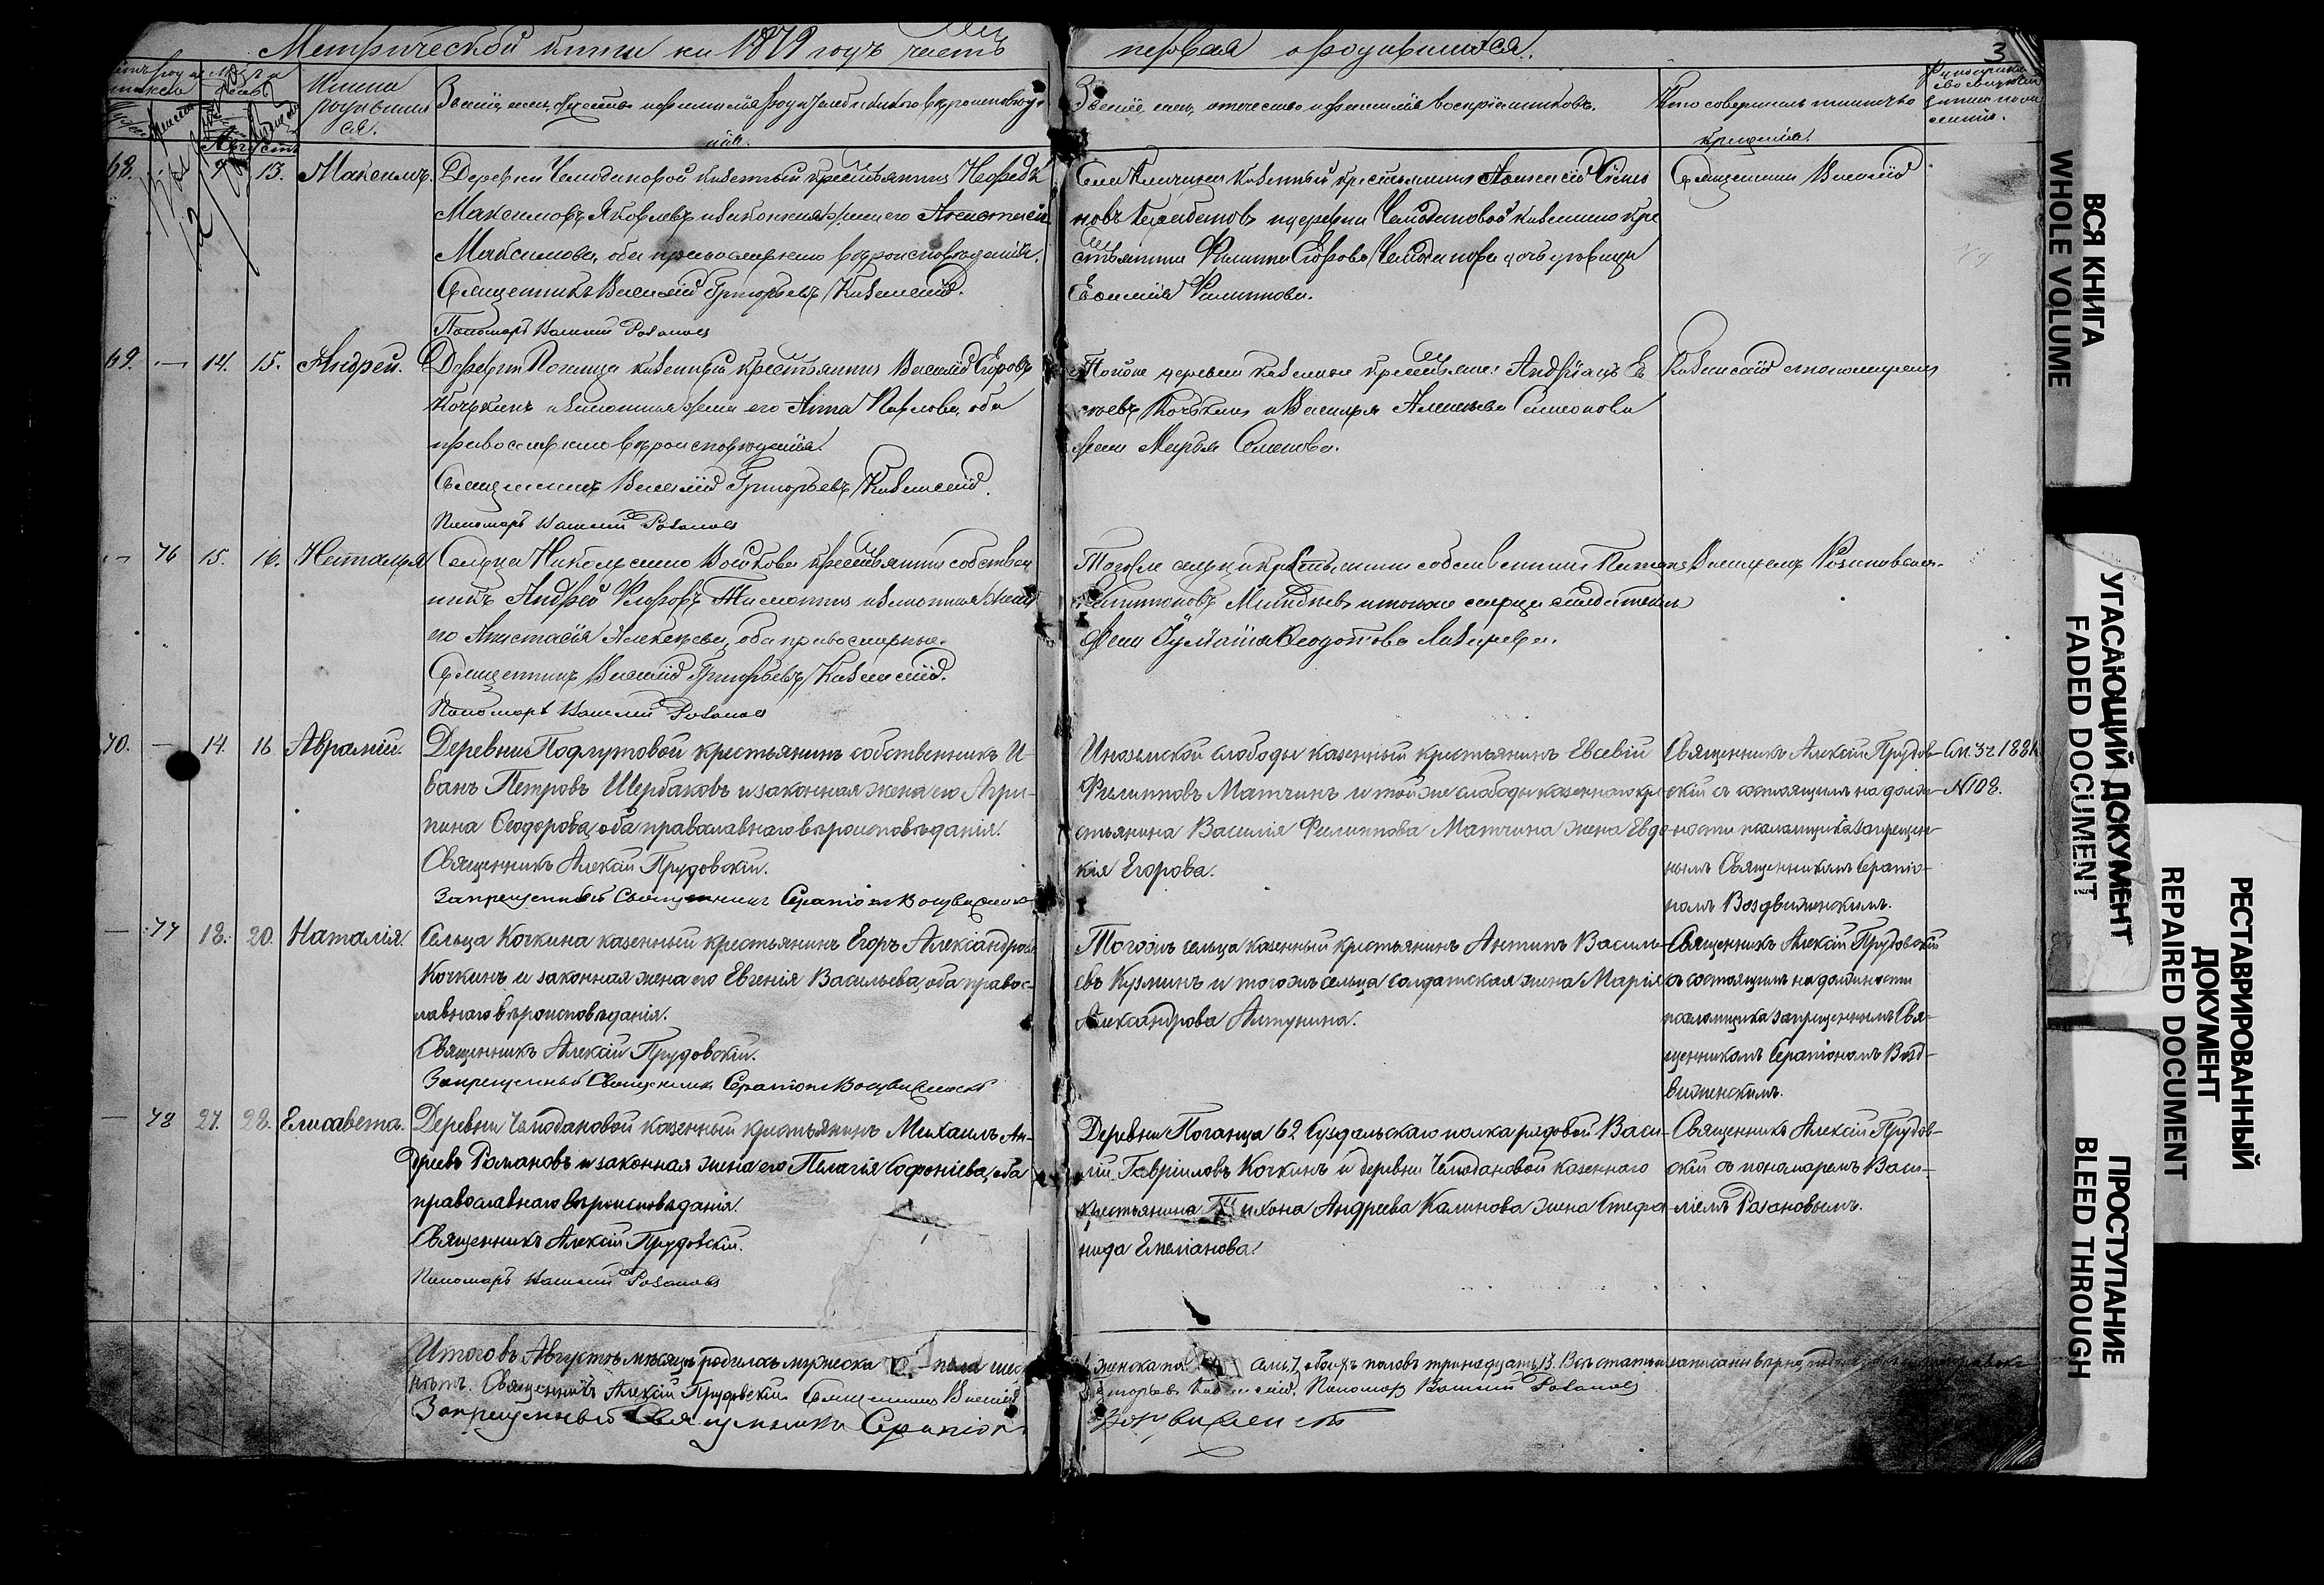 Метрической книги на 1879 годъ часть
первая о родившихся.
3
Имена родившихся.
Званіе, имя, отчество и фамилія родителей и какого вѣроисповѣданія.
Званіе, имя, отчество и фамилія воспріемниковъ.
Кто совершалъ таинство крещенія.
Августъ
68. 13. Максимъ.
Деревни Чемодановой казенный крестьянинъ
Максимовъ Яковлевъ и законная жена его
Максимова, оба православнаго вѣроисповѣданія.
Священникъ Василій Григорьевъ Казанскій.
Пономарь Василий Розановъ
казенный крестьянинъ
и деревни Чемодановой казеннаго кре
стьянина Филиппа Егорова Чемоданова дочь дѣвица
Филиппова.
Священникъ Василій
69. — 14. 15. Андрей.
Деревни Поганца казенный крестьянинъ Василій Егоровъ
Кочкинъ и законная жена его Анна Павлова, оба
православнаго вѣроисповѣданія.
Священникъ Василій Григорьевъ Казанскій.
Пономарь Василий Розановъ
Той же деревни казенные крестьяне: Андріанъ
Кочкинъ и Василья Алексѣева Симонова
жена Марья Семенова.
Казанскій съ пономаремъ
— 76 15. 16. Наталья
Сельца Никольскаго Войкова крестьянинъ собствен
никъ Андрей Флоровъ и законная жена
его Анастасія Алексѣева, оба православные.
Священникъ Василій Григорьевъ Казанскій.
Пономарь Василий Розановъ
Того же сельца крестьянинъ собственникъ
и того же сельца солдатская
жена Іуліанія Ѳеодотова Лазарева.
Василіемъ Розановымъ.
70. — 14. 16 Аврамій.
Деревни Подлутовой крестьянинъ собственникъ И-
ванъ Петровъ Щербаковъ и законная жена его Агри-
пина Ѳеодорова, оба православнаго вѣроисповѣданія.
Священникъ Алексій Прудовскій.
Запрещенный Священникъ Серапіонъ Воздвиженскій
слободы казенный крестьянинъ Евсевій
Филипповъ Матчинъ и той же слободы казеннаго кре
стьянина Василія Филиппова Матчина жена Евдо
кія Егорова.
Священникъ Алексій Прудов-
скій съ состоящимъ на долж-
ности псаломщика запрещен-
нымъ Священникомъ Серапіо-
номъ Воздвиженскимъ.
№108.
— 77 18. 20. Наталія.
Сельца Кочкина казенный крестьянинъ Егоръ Александровъ
Кочкинъ и законная жена его Евгенія Васильева, оба правос-
лавнаго вѣроисповѣданія.
Священникъ Алексій Прудовскій.
Запрещенный Священникъ Серапіонъ Воздвиженскій
Тогожъ сельца казенный крестьянинъ Антипъ Василь-
евъ Кузминъ и тогожъ сельца солдатская жена Марія
Александрова Алтунина.
Священникъ Алексій Прудовскій
съ состоящимъ на должности
псаломщика запрещеннымъ Свя-
щенникомъ Серапіономъ Возд-
виженскимъ.
— 78 27. 28. Елисавета.
Деревни Чемодановой казенный крестьянинъ Михаилъ Ан-
дреевъ Романовъ и законная жена его Пелагія Софоніева, оба
православнаго вѣроисповѣданія.
Священникъ Алексій Прудовскій.
Пономарь Василий Розановъ
Деревни Поганца 62 Суздальскаго полка рядовой Васи-
лій Гавриловъ Кочкинъ и деревни Чемодановой казеннаго
крестьянина Тихона Андреева Калинова жена Стефа
нида Емеліанова.
Священникъ Алексій Прудов-
скій съ пономаремъ Васи-
ліемъ Розановымъ.
Итого въ Августѣ мѣсяцѣ родилось мужеска пола шес
Священникъ Алексій Прудовскій Священникъ Василій
Запрещенный Священникъ Серапіонъ
женска обоихъ половъ тринадцать, 13. Всѣ статьи записаны вѣрно
Григорьевъ Казанскій. Пономарь Василий Розановъ
Воздвиженскій
ВСЯ КНИГА
WHOLE VOLUME
УГАСАЮЩИЙ ДОКУМЕНТ
FADED DOCUMENT
РЕСТАВРИРОВАННЫЙ
ДОКУМЕНТ
REPAIRED DOCUMENT
ПРОСТУПАНИЕ
BLEED THROUGH